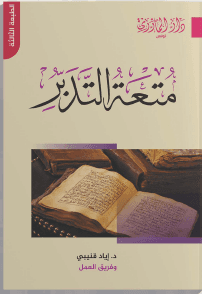 الطبعة الثالثة
متعة التدبر
د. إياد قنيبي
وفريق العمل